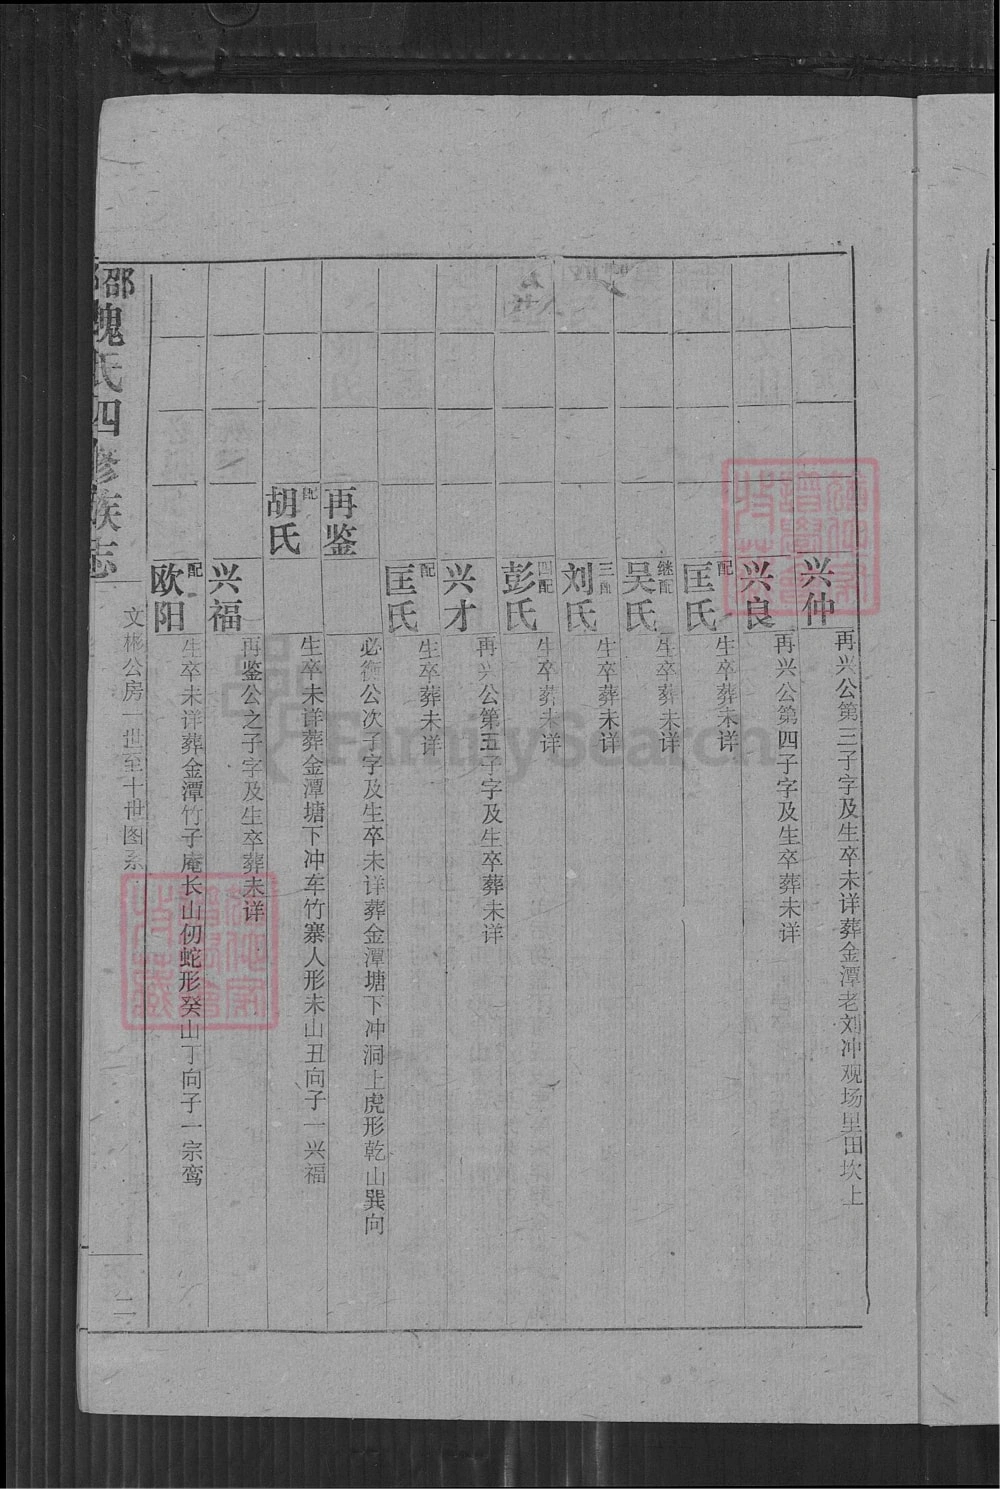 兴仲 再兴公第三子字及生卒未详葬金潭老刘冲观场里田坎上
兴良 再兴公第四子字及生卒葬未详
配 匡氏 生卒葬未详
继配 吴氏 生卒葬未详
三配 刘氏 生卒葬未详
四配 彭氏 生卒葬未详
兴才 再兴公第五子字及生卒葬未详
配 匡氏 生卒葬未详
再鉴 必衡公次子字及生卒未详葬金潭塘下冲洞上虎形乾山巽向
配 胡氏 生卒未详葬金潭塘下冲车竹寨人形未山丑向子一兴福
兴福 再鉴公之子字及生卒葬未详
配 欧阳 生卒未详葬金潭竹子庵长山仞蛇形癸山丁向子一宗鸾
邵魏氏四修族志
文彬公房一世至十世图系
二
FamilySearch